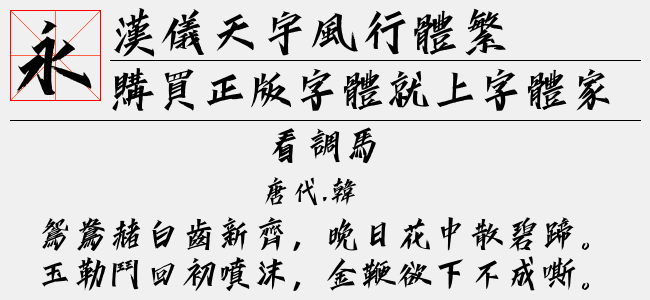 永
漢儀天宇風行體繁
購買正版字體就上字體家
看調馬
唐代.韓
鴛鴦赭白齒新齊，晚日花中散碧蹄。
玉勒鬥回初噴沫，金鞭欲下不成嘶。